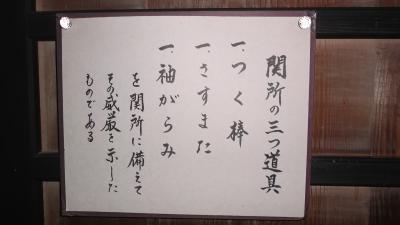 関所の三つ道具
一、つく棒
一、さすまた
一、袖がらみ
を関所に備えて
その威厳を示した
ものである